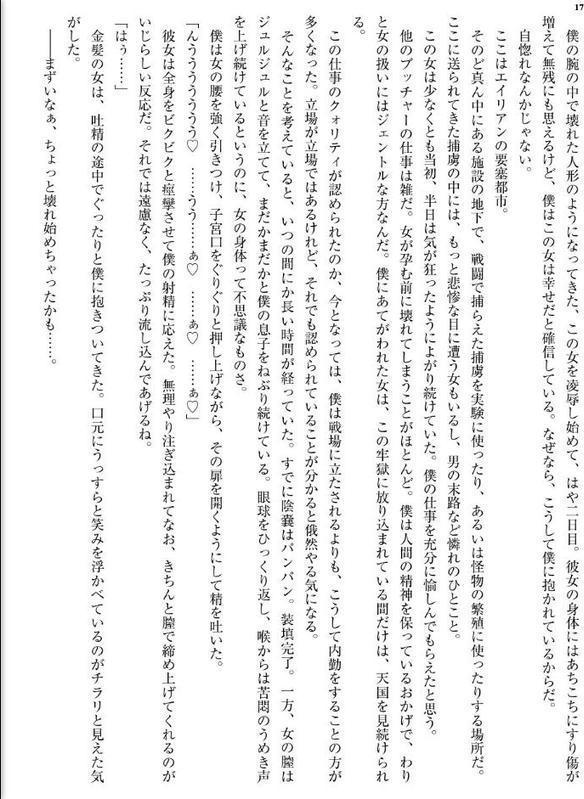 17
　僕の腕の中で壊れた人形のようになってきた、この女を凌辱し始めて、はや二日目。彼女の身体にはあちこちにすり傷が
増えて無残にも思えるけど、僕はこの女は幸せだと確信している。なぜなら、こうして僕に抱かれているからだ。
　自惚れなんかじゃない。
　ここはエイリアンの要塞都市。
　そのど真ん中にある施設の地下で、戦闘で捕らえた捕虜を実験に使ったり、あるいは怪物の繁殖に使ったりする場所だ。
ここに送られてきた捕虜の中には、もっと悲惨な目に遭う女もいるし、男の末路など憐れのひとこと。
　この女は少なくとも当初、半日は気が狂ったようによがり続けていた。僕の仕事を充分に愉しんでもらえたと思う。
　他のブッチャーの仕事は雑だ。女が孕む前に壊れてしまうことがほとんど。僕は人間の精神を保っているおかげで、わり
と女の扱いにはジェントルな方なんだ。僕にあてがわれた女は、この牢獄に放り込まれている間だけは、天国を見続けられ
る。
　この仕事のクォリティが認められたのか、今となっては、僕は戦場に立たされるよりも、こうして内勤をすることの方が
多くなった。立場が立場ではあるけれど、それでも認められていることが分かると俄然やる気になる。
　そんなことを考えていると、いつの間にか長い時間が経っていた。すでに陰嚢はパンパン。装填完了。一方、女の膣は
ジュルジュルと音を立てて、まだかまだかと僕の息子をねぶり続けている。眼球をひっくり返し、喉からは苦悶のうめき声
を上げ続けているというのに、女の身体って不思議なものさ。
　僕は女の腰を強く引きつけ、子宮口をぐりぐりと押し上げながら、その扉を開くようにして精を吐いた。
「んうううううう♡　……うう……ぁ♡　……ぁ♡　……ぁ♡」
　彼女は全身をビクビクと痙攣させて僕の射精に応えた。無理やり注ぎ込まれてなお、きちんと膣で締め上げてくれるのが
いじらしい反応だ。それでは遠慮なく、たっぷり流し込んであげるね。
「はぅ……」
　金髪の女は、吐精の途中でぐったりと僕に抱きついてきた。口元にうっすらと笑みを浮かべているのがチラリと見えた気
がした。
　――まずいなぁ、ちょっと壊れ始めちゃったかも……。